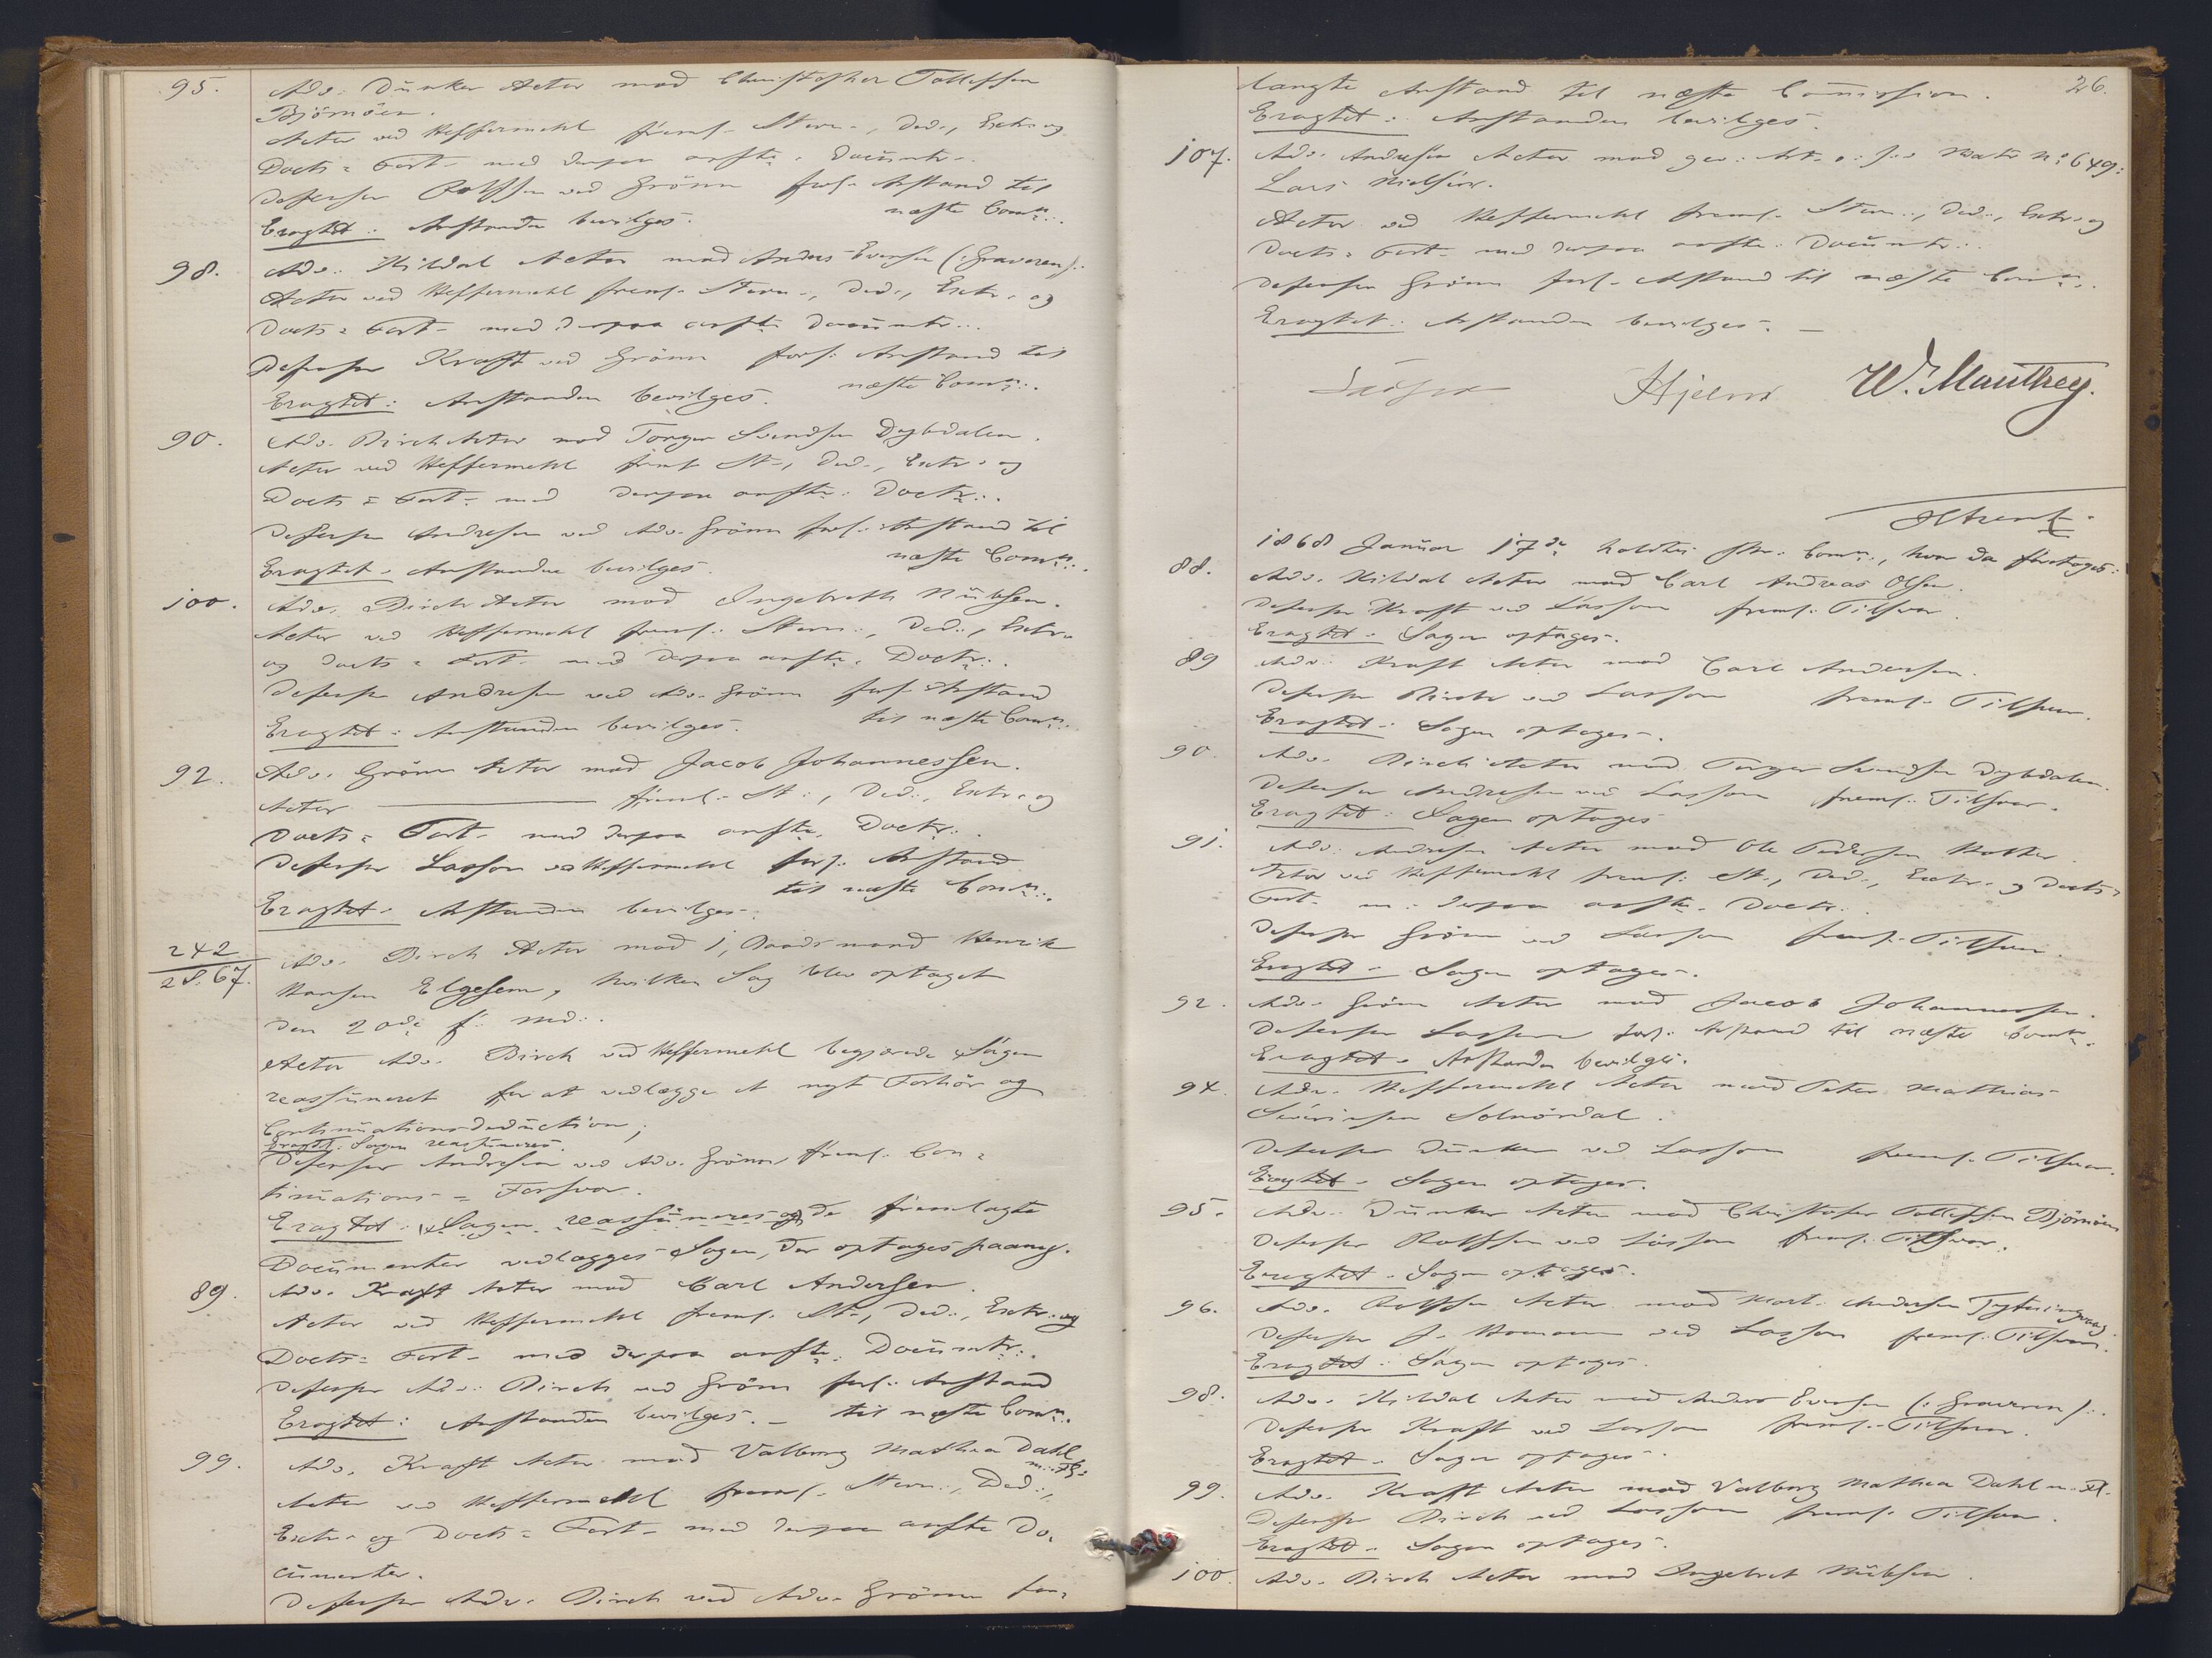 95. Adv. Dunker Actor mod Christopher Tollefsen
Björnöen.
Actor ved Heffermehl freml. Stevn., Ded., Extr. og
Docts = Fort. med derpaa anfte. Documtr.
Defensor Rolfsen ved Grönn forl. Anstand til
næste Comn.
Eragtet: Anstanden bevilges.
98. Adv. Kildal Actor mod Anders Evensen (: Graveren).
Actor ved Heffermehl freml. Stevn., Ded., Extr. og
Docts = Fort. med derpaa anfte Documtr.
Defensor Kraft ved Grönn forl. Anstand til
næste Comn.
Eragtet: Anstanden bevilges.
90. Adv. Birch Actor mod Torger Svendsen Dybdalen.
Actor ved Heffermehl freml. St., Ded., Extr. og
Docts = Fort. med derpaa anfte. Doctr.
Defensor Andresen ved Adv. Grönn forl. Anstand til
næste Comn.
Eragtet. Anstanden bevilges.
100. Adv. Birch Actor mod Ingebreth Nübsen.
Actor ved Heffermehl freml. Stevn., Ded., Extr.
og Docts = Fort. med derpaa anfte. Doctr.
Defensor Andresen ved Adv. Grönn forl. Anstand
til næste Comn.
Eragtet: Anstanden bevilges.
92. Adv. Grönn Actor mod Jacob Johannessen.
Actor freml. St., Ded., Extr. og
Docts = Fort. med derpaa anfte. Doctr.
Defensor Lasson ved Heffermehl forl. Anstand
til næste Comn.
Eragtet. Anstanden bevilges.
242/2S.67. Adv. Birch Actor mod 1, Baadsmand Henrik
Hansen Elgesem, hvilken Sag blev optaget
den 20de f. Md.
Actor Adv. Birch ved Heffermehl begjærede Sagen
reassumeret for at vedlægge et nyt Forhör og
Continuationsdeduction;
Eragtet: Sagen reassumeres.
Defensor Andresen ved Adv. Grönn freml. Con=
tinuations = Forsvar.
Eragtet: Sagen reassumeres og de fremlagte
Documenter vedlægges Sagen, der optages paany.
89. Adv. Kraft Actor mod Carl Andersen.
Actor ved Heffermehl freml. St., Ded., Extr. og
Docts = Fort. med derpaa anfte. Documtr.
Defensor Adv. Birch ved Grönn forl. Anstand
Eragtet: Anstanden bevilges. – til næste Comn.
99. Adv. Kraft Actor mod Valborg Mathea Dahl
m. Fl.
Actor ved Heffermehl freml. Stevn., Ded.,
Extr. og Docts = Fort. med derpaa anfte Do=
cumenter.
Defensor Adv. Birch ved Adv. Grönn for=
26.
langte Anstand til næste Commission.
Eragtet: Anstanden bevilges.
107. Adv. Andresen Actor mod Matr No 649:
Lars Nielsen.
Actor ved Heffermehl freml. Stevn., Ded., Extr. og
Docts = Fort. med derpaa anfte. Documtr.
Defensor Grönn forl. Anstand til næste Comn.
Eragtet: Anstanden bevilges. –
Hjelm W. Manthey.
1868 Januar 17de holdtes Comn., hvor da foretoges:
88. Adv. Kildal Actor mod Carl Andreas Olsen.
Defensor Kraft ved Lasson freml. Tilsvar.
Eragtet. Sagen optages.
89 Adv. Kraft Actor mod Carl Andersen.
Defensor Birch ved Lasson freml. Tilsvar.
Eragtet. Sagen optages.
90 Adv. Birch Actor mod Torger Svendsen Dybdalen.
Defensor Andresen ved Lasson freml. Tilsvar.
Eragtet: Sagen optages
91. Adv. Andresen Actor mod Ole Pedersen
Actor ved Heffermehl freml. St., Ded., Extr. og Docts =
Fort. m. derpaa anfte. Doctr.
Defensor Grönn ved Lasson freml. Tilsvar.
Eragtet. Sagen optages.
92. Adv. Grönn Actor mod Jacob Johannessen.
Defensor Lasson forl. Anstand til næste Comn.
Eragtet. Anstanden bevilges.
94. Adv. Heffermehl Actor mod Peter Mathias
Severinsen Solnördal.
Defensor Dunker ved Lasson freml. Tilsvar.
Eragtet. Sagen optages.
95. Adv. Dunker Actor mod Christofer Tollefsen Björnöen
Defensor Rolfsen ved Lasson freml. Tilsvar.
Eragtet. Sagen optages.
96. Adv. Rolfsen Actor mod Mort. Andersen
Defensor J. Homann ved Lasson freml. Tilsvar.
Eragtet: Sagen optages.
98. Adv. Kildal Actor mod Anders Evensen (: Graveren).
Defensor Kraft ved Lasson freml. Tilsvar.
Eragtet. Sagen optages.
99. Adv. Kraft Actor mod Valborg Mathea Dahl m. Fl.
Defensor Birch ved Lasson freml. Tilsvar.
Eragtet. Sagen optages.
100 Adv. Birch Actor mod Ingebret Nübsen.